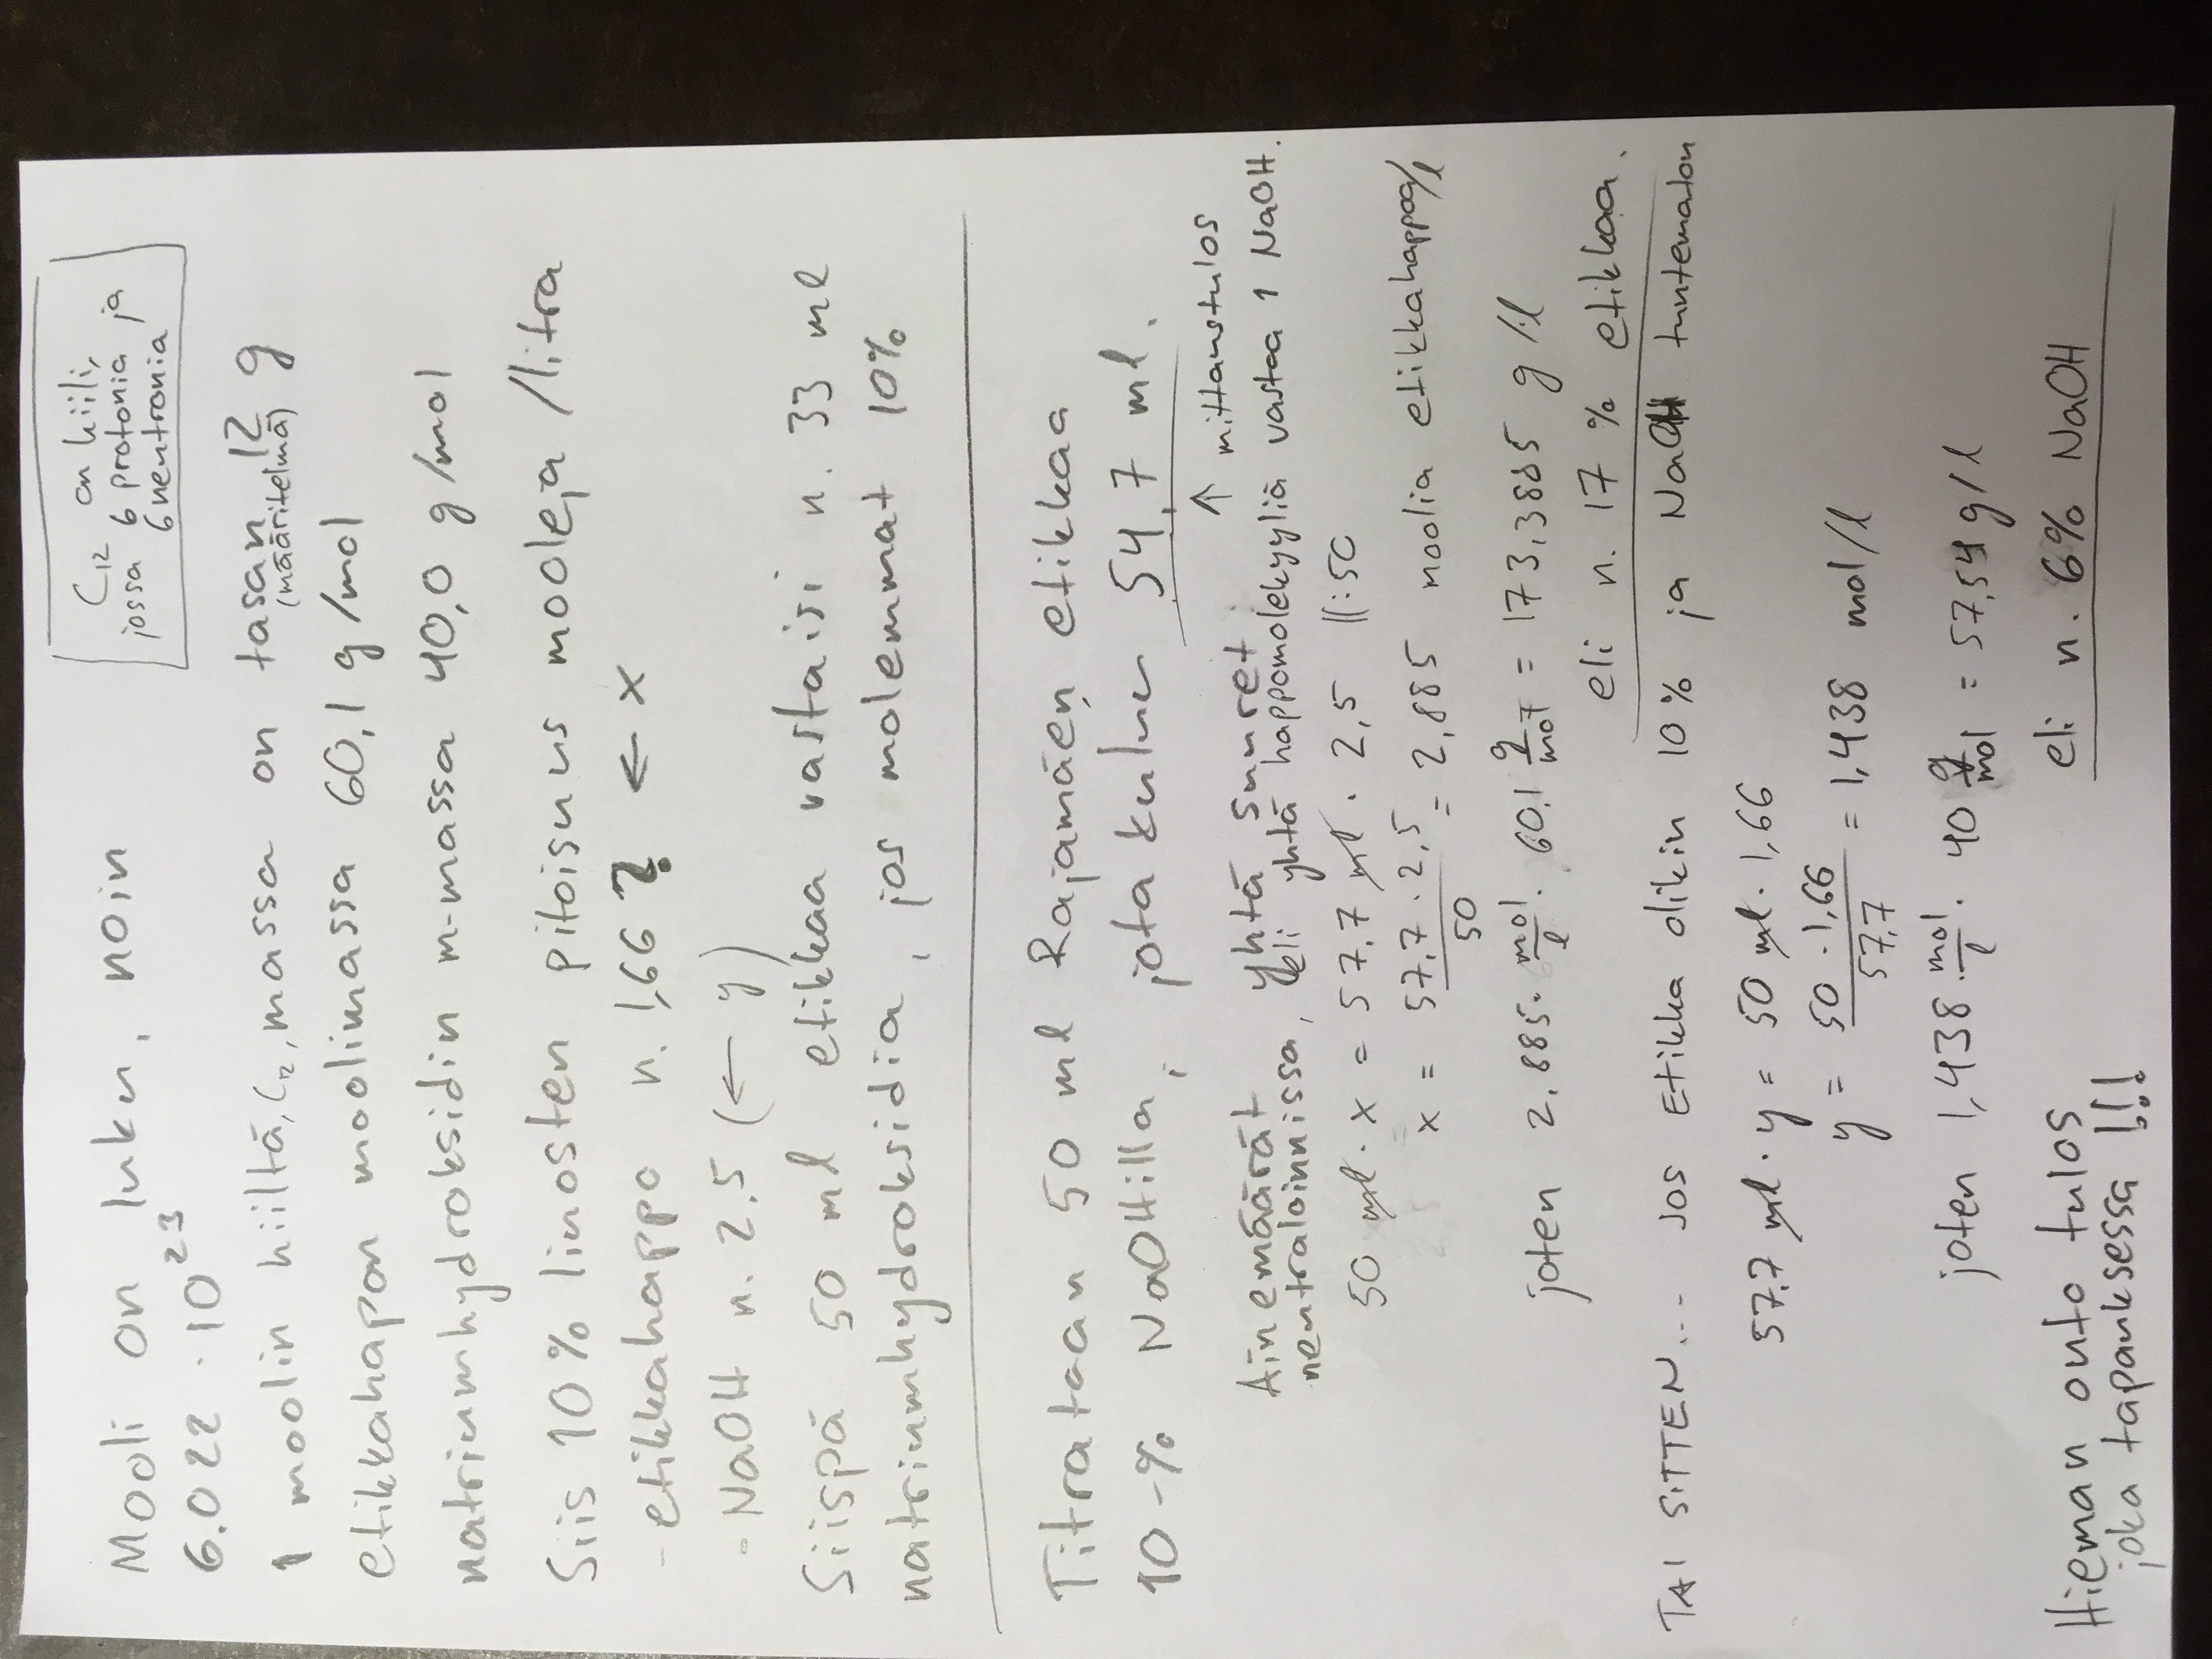 C₁₂ on hiili,
jossa 6 protonia ja
6 neutronia
Mooli on luku, noin
6.022 · 10²³
1 moolin hiiltä, C₁₂, massa on tasan 12 g
(määritelmä)
etikkahapon moolimassa 60,1 g/mol
natriumhydroksidin m-massa 40,0 g/mol
Siis 10% liuosten pitoisuus mooleja/litra
- etikkahappo n. 1,66 ? ← x
- NaOH n. 2,5 (← y)
Siispä 50 ml etikkaa vastaisi n. 33 ml
natriumhydroksidia, jos molemmat 10%
Titrataan 50 ml Rajamäen etikkaa
10-% NaOHilla, jota kuluu 54,7 ml.
↑ mittaustulos
Ainemäärät yhtä suuret
neutraloinnissa, eli yhtä happomolekyyliä vastaa 1 NaOH.
50 ml · x = 57,7 ml · 2,5 ||:50
x = 57,7 · 2,5 / 50 = 2,885 moolia etikkahappoa/l
joten 2,885 · mol/l · 60,1 g/mol = 173,3885 g/l
eli n. 17 % etikkaa.
TAI SITTEN... JOS Etikka olikin 10% ja NaOH tuntematon
57,7 ml · y = 50 ml · 1,66
y = 50 · 1,66 / 57,7 = 1,438 mol/l
joten 1,438 · mol/l · 40 g/mol = 57,54 g/l
eli n. 6% NaOH
Hieman outo tulos
joka tapauksessa !!!